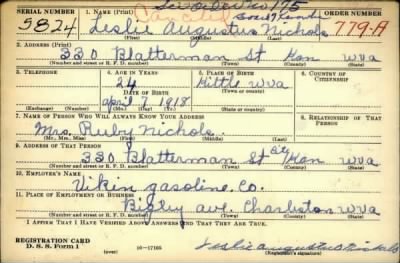 SERIAL NUMBER 1. NAME (Print) ORDER NUMBER
5824 Leslie Augustus Nichols 779-A
(First) (Middle) (Last)
2. ADDRESS (Print)
330 Blatterman St Kan WVa
(Number and street or R. F. D. number) (Town) (County) (State)
3. TELEPHONE 4. AGE IN YEARS 5. PLACE OF BIRTH 6. COUNTRY OF CITIZENSHIP
24 Hittle WVa
DATE OF BIRTH (Town or county)
April 7, 1918
(Exchange) (Number) (Mo.) (Day) (Yr.) (State or country)
7. NAME OF PERSON WHO WILL ALWAYS KNOW YOUR ADDRESS 8. RELATIONSHIP OF THAT PERSON
Mrs. Ruby Nichols
(Mr., Mrs., Miss) (First) (Middle) (Last)
9. ADDRESS OF THAT PERSON
330 Blatterman St City Kan WVa
(Number and street or R. F. D. number) (Town) (County) (State)
10. EMPLOYER'S NAME
Vikin gasoline Co.
11. PLACE OF EMPLOYMENT OR BUSINESS
Bigley ave Charleston WVa
(Number and street or R. F. D. number) (Town) (County) (State)
I AFFIRM THAT I HAVE VERIFIED ABOVE ANSWERS AND THAT THEY ARE TRUE.
REGISTRATION CARD
D. S. S. Form 1 (over) 16—17105 Leslie Augustus Nichols
(Registrant's signature)